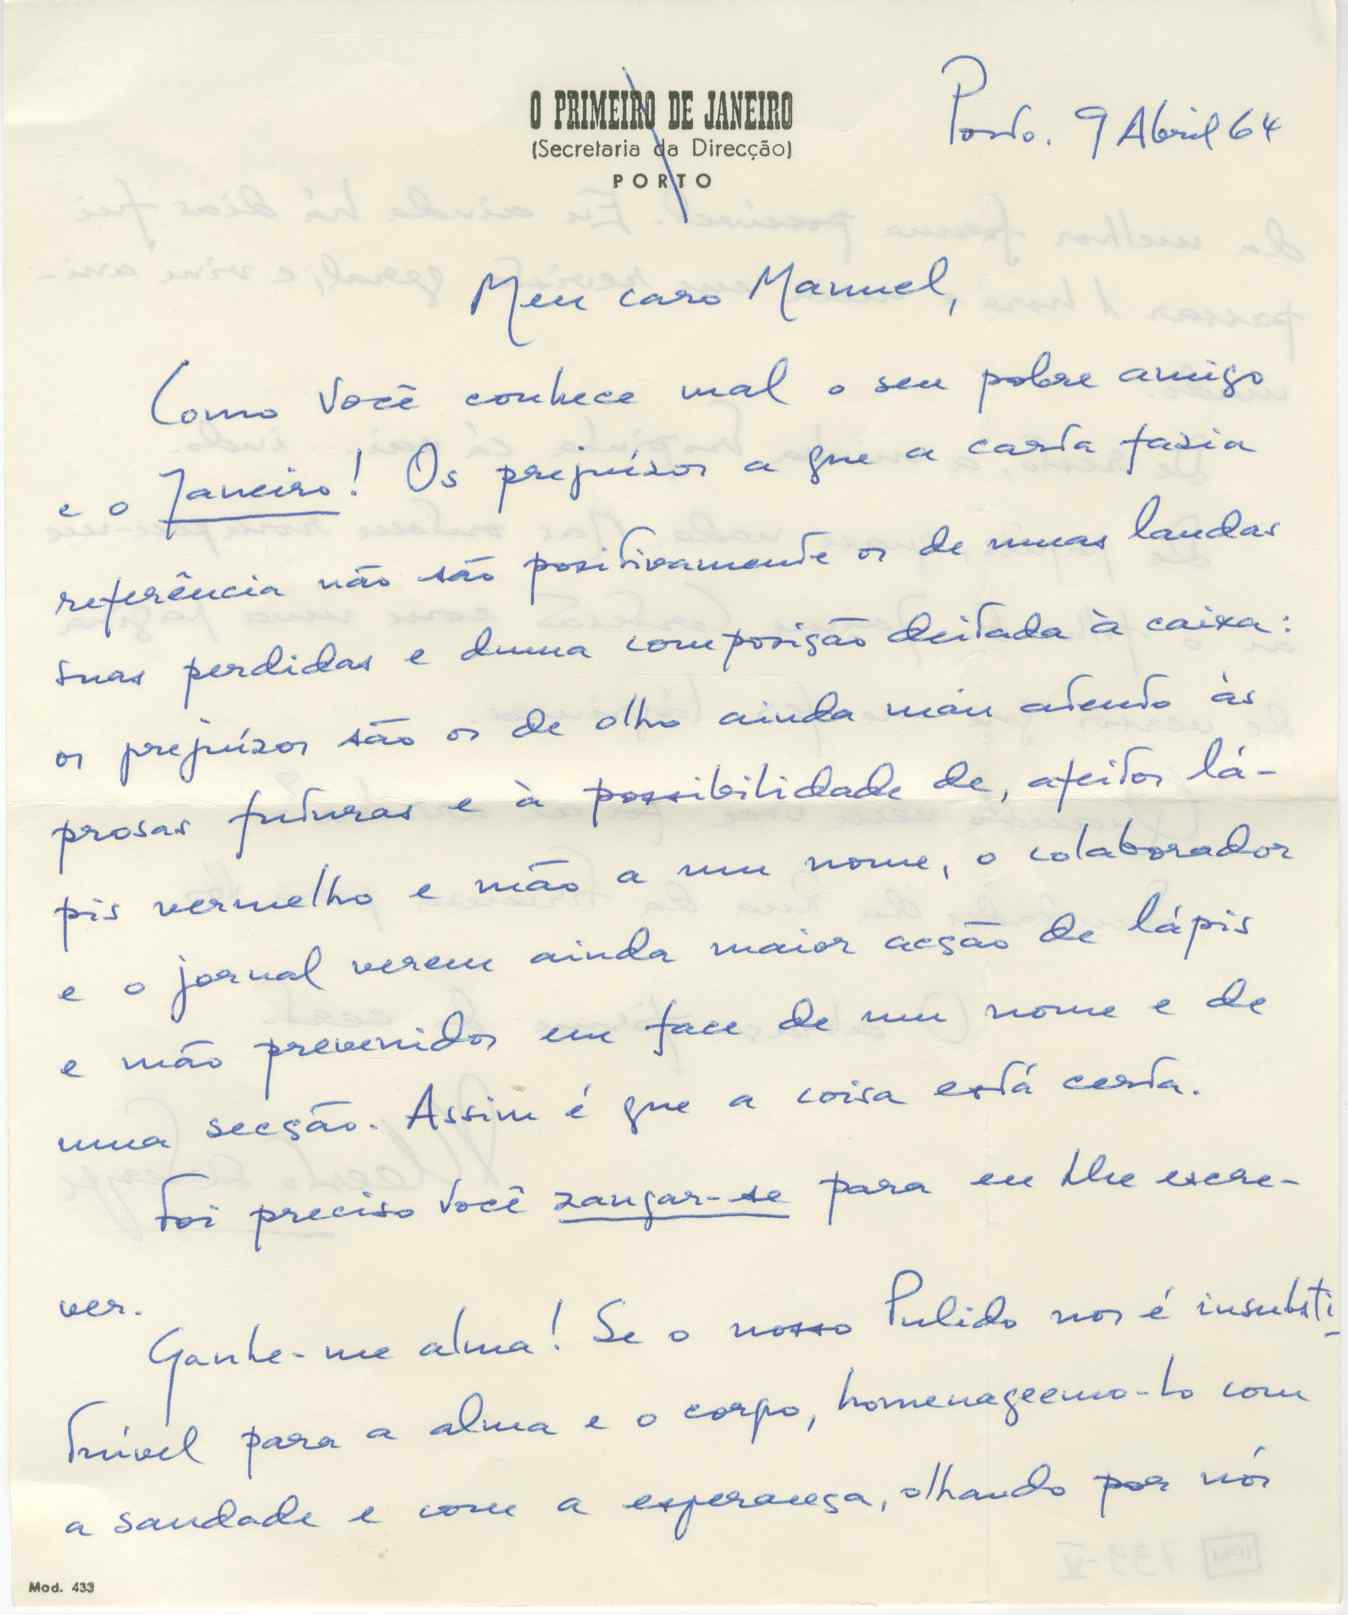 O PRIMEIRO DE JANEIRO
(Secretaria da Direcção)
PORTO
Porto. 9 Abril 64
Meu caro Manuel,
Como Você conhece mal o seu pobre amigo
e o Janeiro! Os prejuízos a que a carta fazia
referência não são positivamente os de umas laudas
suas perdidas e duma composição deitada à caixa:
os prejuízos são os de olho ainda mais atento às
prosas futuras e à possibilidade de, afeitos lá-
pis vermelho e mão a um nome, o colaborador
e o jornal verem ainda maior acção de lápis
e mão prevenidos em face de um nome e de
uma secção. Assim é que a coisa está certa.
Foi preciso Você zangar-se para eu lhe escre-
ver.
Ganhe-me alma! Se o nosso Pulido nos é insubsti-
tuível para a alma e o corpo, homenageemo-lo com
a saudade e com a esperança, olhando por nós
Mod. 433